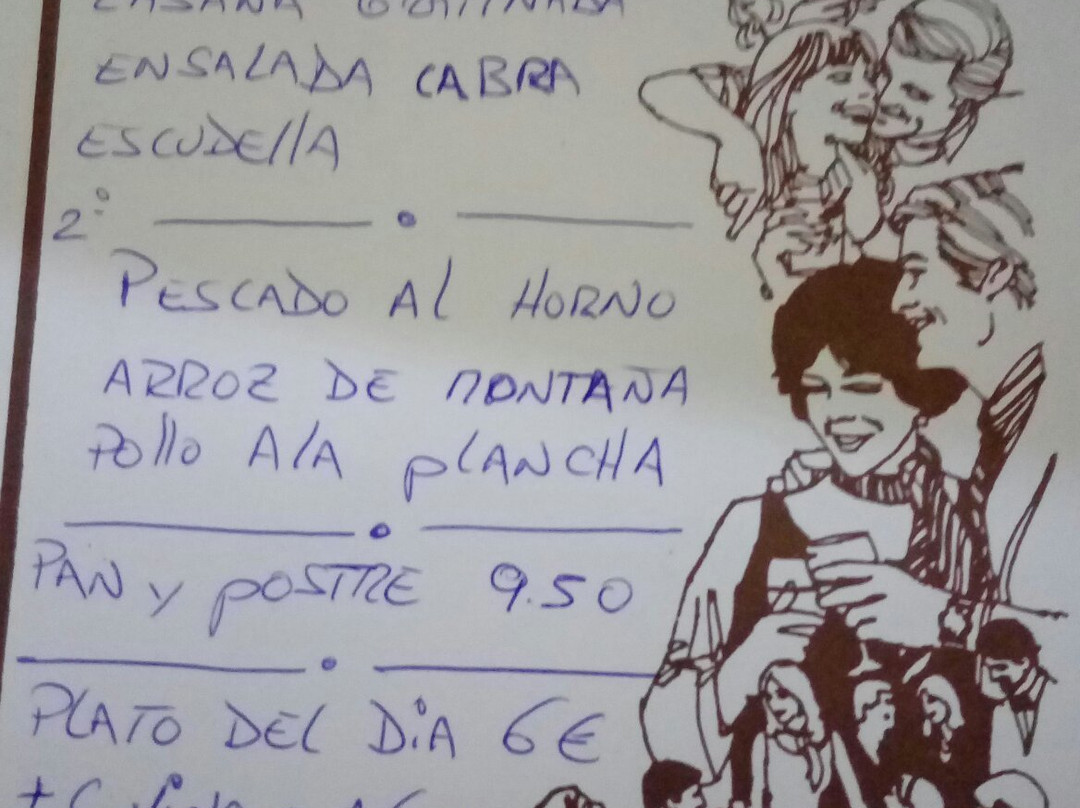 LASAÑA GRATINADA
ENSALADA CABRA
ESCUDELLA
2º
PESCADO AL HORNO
ARROZ DE MONTAÑA
POLLO A LA PLANCHA
PAN Y POSTRE 9.50
PLATO DEL DIA 6€